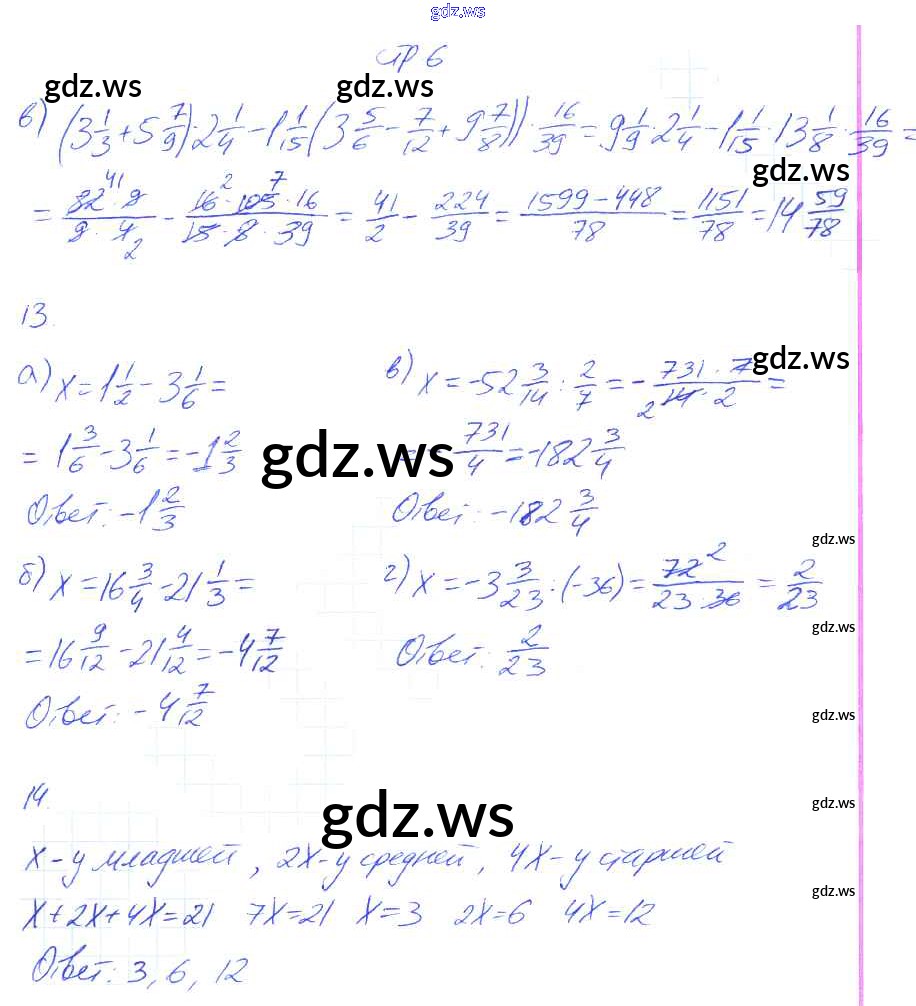 gdz.ws
стр 6
gdz.ws gdz.ws
в) (3 1/3 + 5 7/9) · 2 1/4 − 1 1/15 (3 5/6 − 7/12 + 9 7/8)) · 16/39 = 9 1/9 · 2 1/4 − 1 1/15 · 13 1/8 · 16/39 =
gdz.ws
= 82 41 · 9 / 9 · 4 2 − 16 2 · 105 7 · 16 / 15 · 8 · 39 = 41/2 − 224/39 = 1599 − 448 / 78 = 1151/78 = 14 59/78
13.
gdz.ws
а) x = 1 1/2 − 3 1/6 =
= 1 3/6 − 3 1/6 = −1 2/3
Ответ: −1 2/3
в) x = −52 3/14 : 2/7 = − 731 · 7 / 2 14 · 2 =
= − 731/4 = −182 3/4
Ответ: −182 3/4
gdz.ws
gdz.ws
б) x = 16 3/4 − 21 1/3 =
= 16 9/12 − 21 4/12 = −4 7/12
Ответ: −4 7/12
г) x = −3 3/23 : (−36) = 72 2 / 23 · 36 = 2/23
Ответ: 2/23
gdz.ws
gdz.ws
14.
gdz.ws
gdz.ws
x − у младшей, 2x − у средней, 4x − у старшей
gdz.ws
x + 2x + 4x = 21 7x = 21 x = 3 2x = 6 4x = 12
Ответ: 3, 6, 12